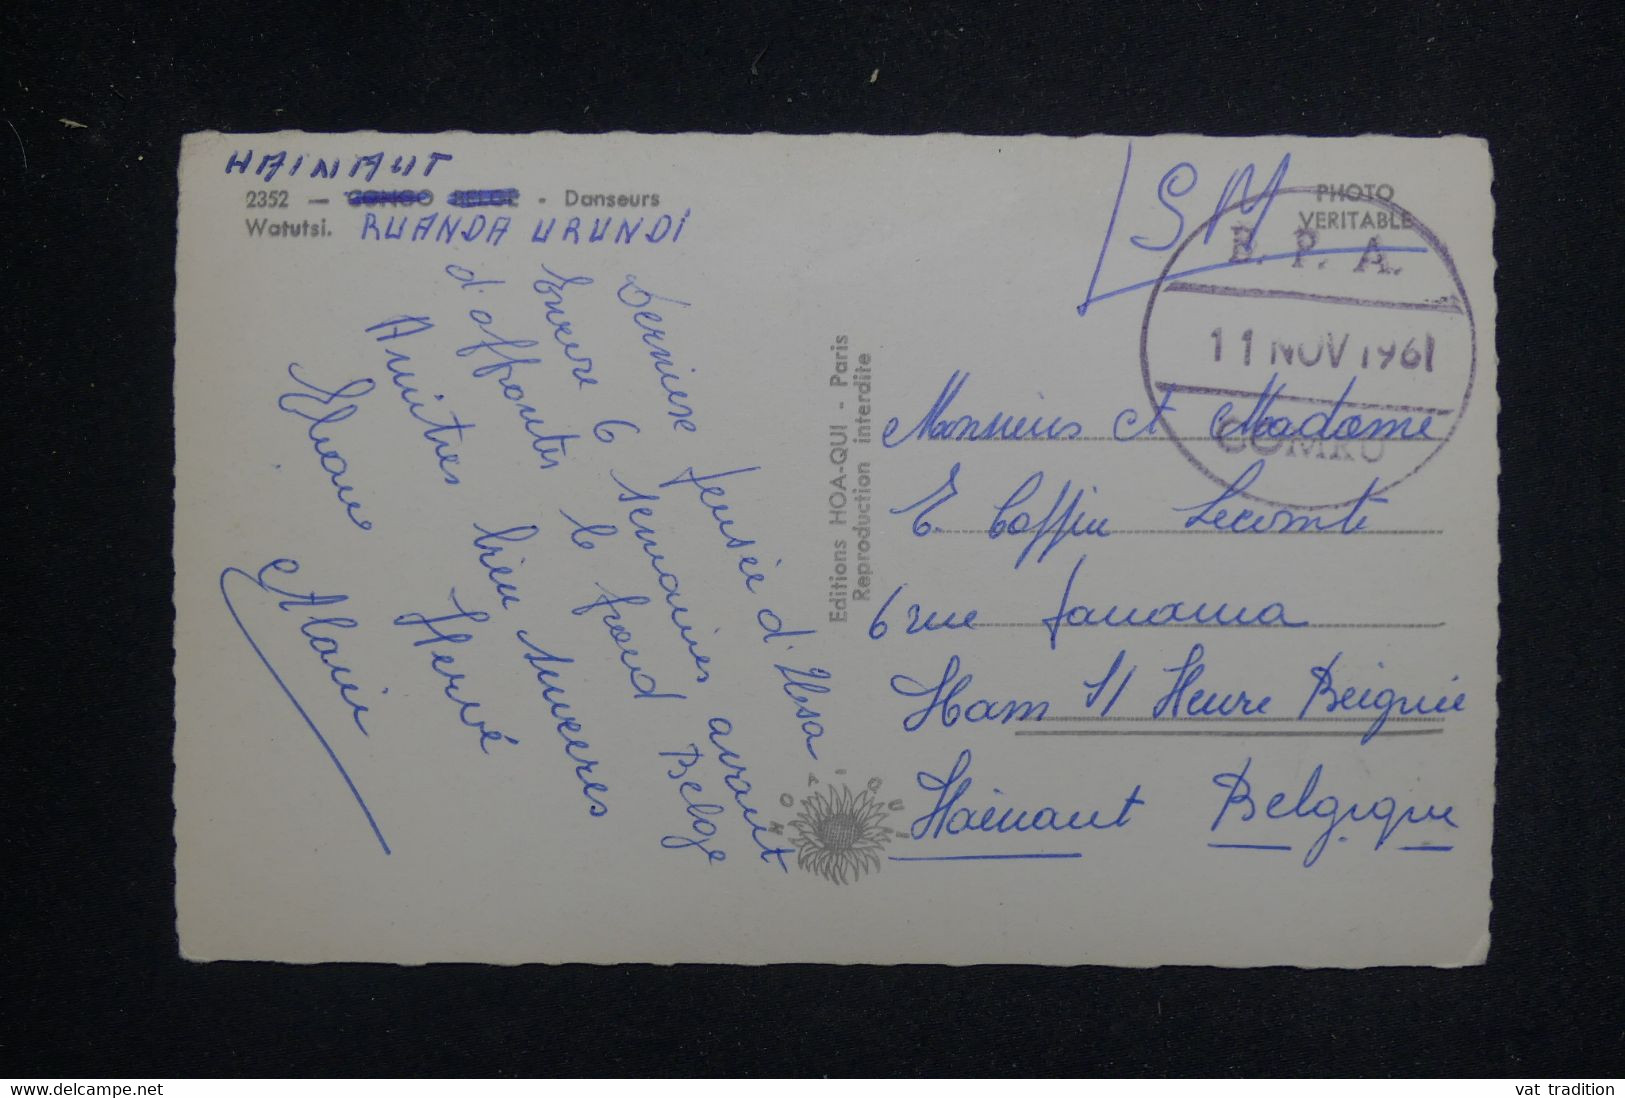 HAINAUT
2352 — CONGO BELGE - Danseurs
Watutsi. RUANDA URUNDI
Dernière pensée d'Usa
Encore 6 semaines avant
d'affronter le froid Belge
Amitiés bien sincères
Eliane Hervé
Alain
Editions HOA-QUI - Paris
Reproduction interdite
HOA-QUI
SM
PHOTO
VERITABLE
B. P. A.
11 NOV 1961
COMRU
Monsieur et Madame
E. Coffin Lecomte
6 rue Panama
Ham s/ Heure
Hainaut Belgique
Delcampe.net
vat tradition